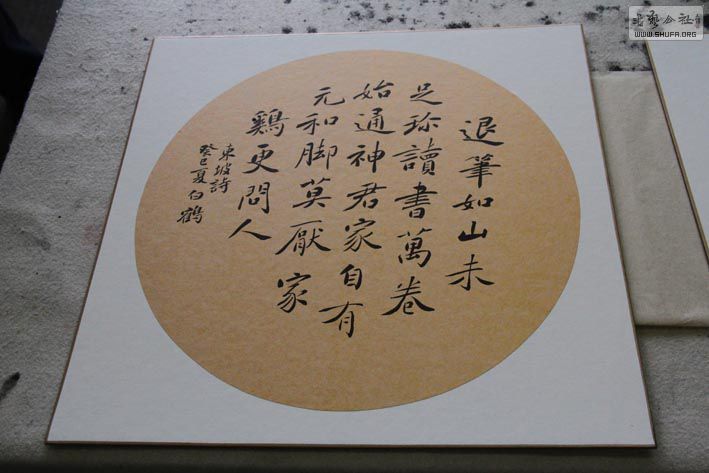 退筆如山未
足珎讀書萬卷
始通神君家自有
元和脚莫厭家
鷄更問人
東坡詩
癸巳夏白鶴
書藝公社
WWW.SHUFA.ORG